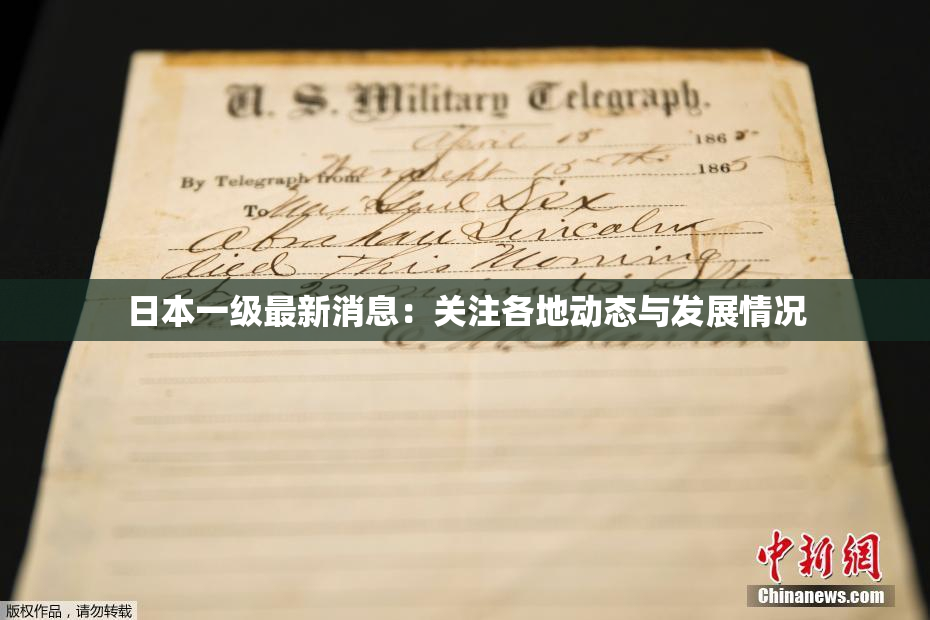 U. S. Military Telegraph.
April 15 1865
By Telegraph from War Dept 15th 1865
To Maj Genl Dix
Abraham Lincoln
died This Morning
at 22 minutes after
日本一级最新消息：关注各地动态与发展情况
E. M. Stanton
中新網
Chinanews.com
版权作品，请勿转载